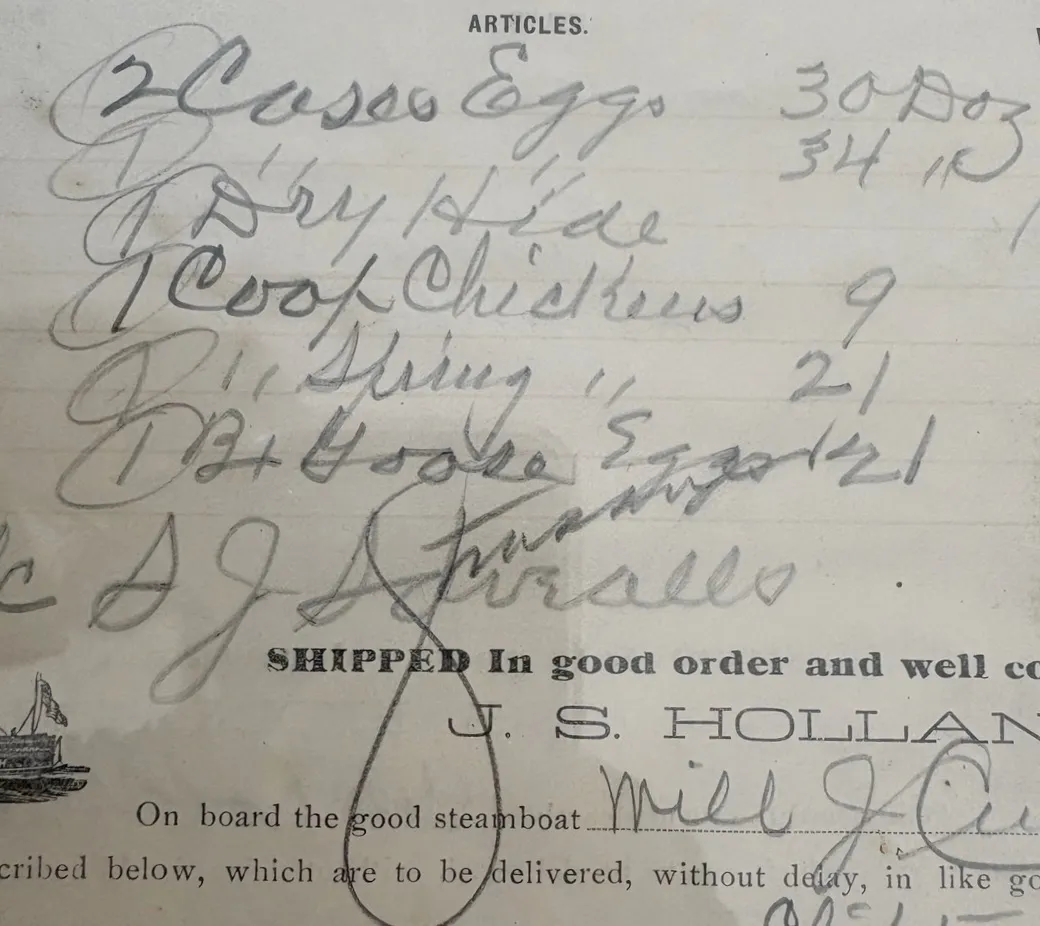 ARTICLES.
2 Cases Eggs 30 Doz
1 " " " 34 "
1 Dry Hide 1
1 Coop Chickens 9
1 " " Spring " 21
1 Bx Goose Eggs 121
S J
SHIPPED In good order and well co
J. S. HOLLAN
On board the good steamboat Will J Cu
cribed below, which are to be delivered, without delay, in like go